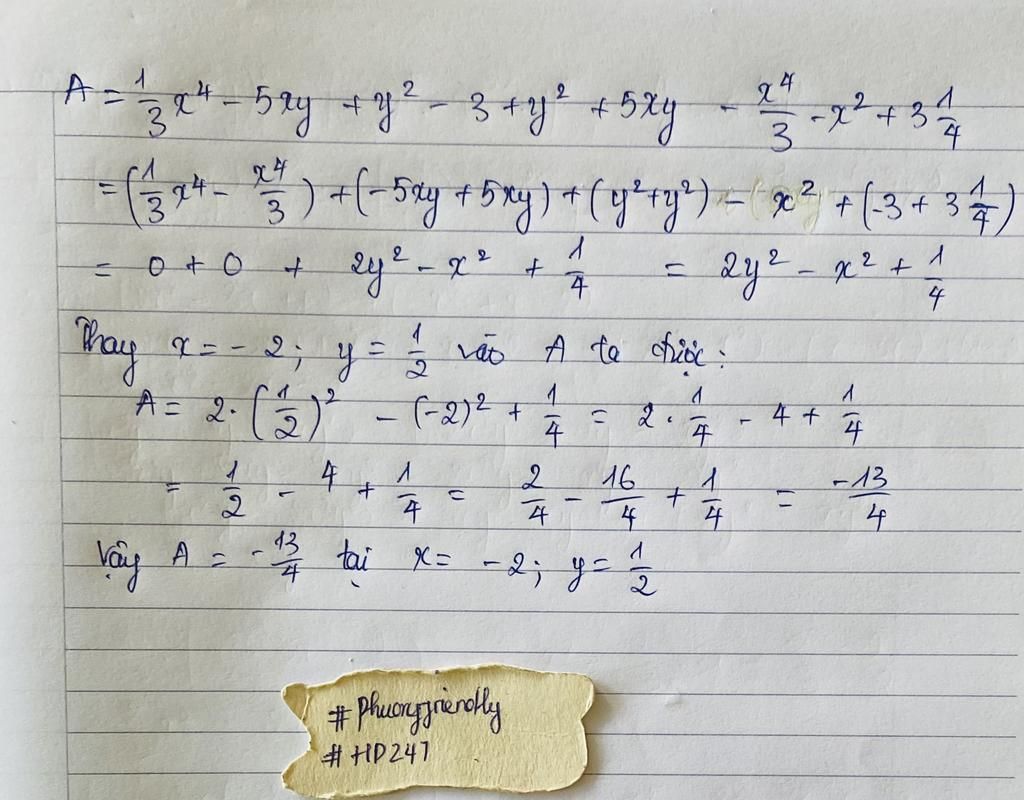 A = \frac{1}{3}x^4 - 5xy + y^2 - 3 + y^2 + 5xy - \frac{x^4}{3} - x^2 + 3\frac{1}{4}
= (\frac{1}{3}x^4 - \frac{x^4}{3}) + (-5xy + 5xy) + (y^2 + y^2) - x^2 + (-3 + 3\frac{1}{4})
= 0 + 0 + 2y^2 - x^2 + \frac{1}{4} = 2y^2 - x^2 + \frac{1}{4}
Thay x = -2; y = \frac{1}{2} vào A ta được:
A = 2 \cdot (\frac{1}{2})^2 - (-2)^2 + \frac{1}{4} = 2 \cdot \frac{1}{4} - 4 + \frac{1}{4}
= \frac{1}{2} - 4 + \frac{1}{4} = \frac{2}{4} - \frac{16}{4} + \frac{1}{4} = \frac{-13}{4}
Vậy A = -\frac{13}{4} tại x = -2; y = \frac{1}{2}
#phuongfriendly
#HD247